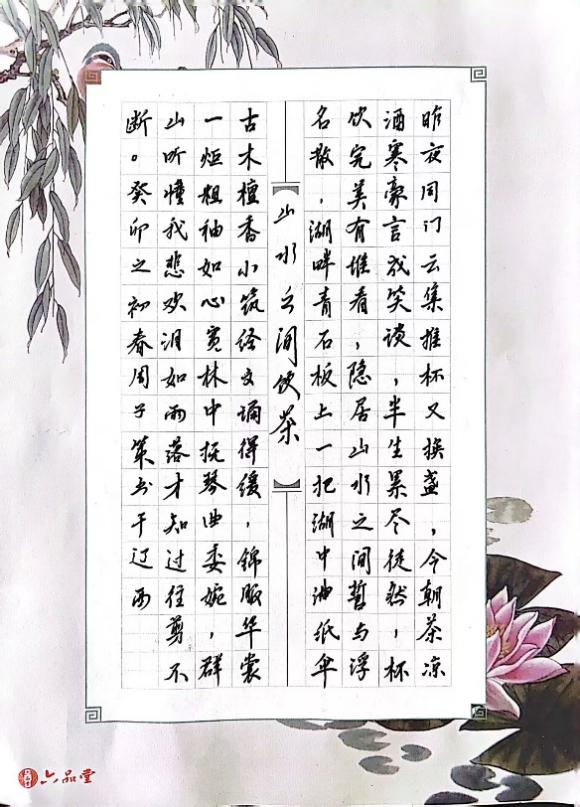 昨夜同门云集推杯又换盏，今朝茶凉
酒寒豪言成笑谈，半生累尽徒然，杯
饮完美有谁看，隐居山水之间誓与浮
名散，湖畔青石板上一把湖中油纸伞
山水之间饮茶
古木檀香小筑经文诵得缓，锦服华裳
一炬粗袖如心宽林中抚琴曲委婉，群
山听懂我悲欢泪如雨落才知过往剪不
断。癸卯之初春周子策书于辽西
六品堂